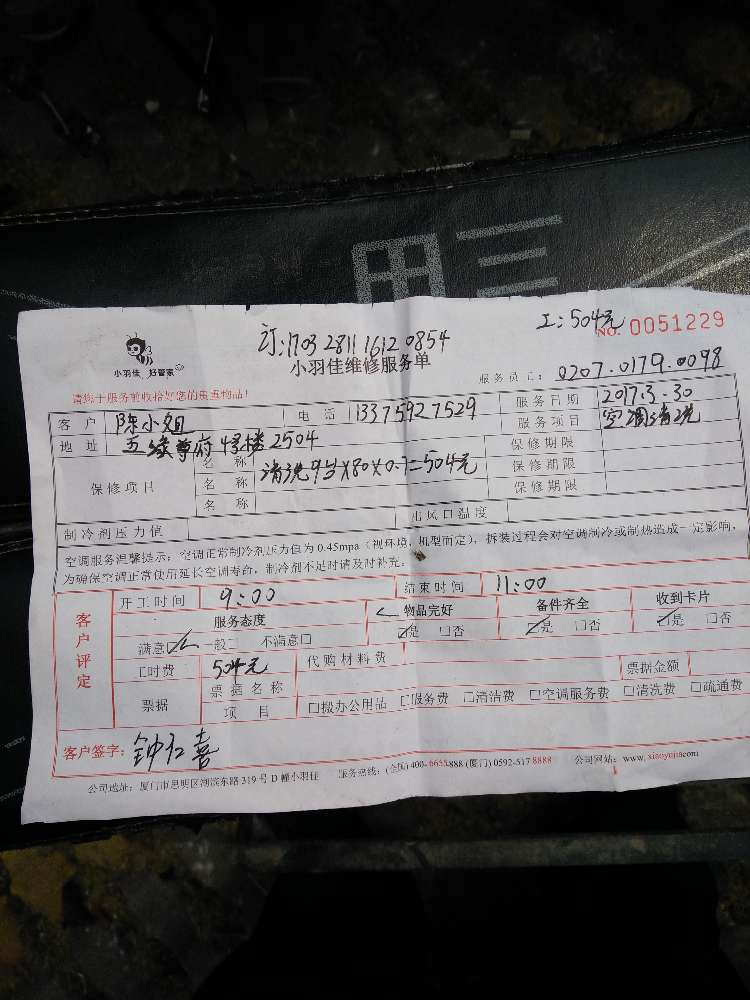 三田
订:1703281116120854
工:504元
NO. 0051229
小羽佳 好管家
小羽佳维修服务单
服务员工: 0207.0179.0098
请您于服务前收拾好您的贵重物品!
客户 陈小姐 电话 13375927529 服务日期 2017.3.30
地址 五缘尊府4号楼2504 服务项目 空调清洗
保修项目 名称 清洗9台×80×0.7=504元 保修期限
名称 保修期限
名称 保修期限
制冷剂压力值 出风口温度
空调服务温馨提示:空调正常制冷剂压力值为 0.45mpa(视环境、机型而定),拆装过程会对空调制冷或制热造成一定影响,
为确保空调正常使用延长空调寿命,制冷剂不足时请及时补充。
客户评定
开工时间 9:00 结束时间 11:00
服务态度 物品完好 备件齐全 收到卡片
满意☑ 一般□ 不满意□ ☑是 □否 ☑是 □否 ☑是 □否
工时费 504元 代购材料费 票据金额
票据 票据名称
项目 □拨办公用品 □服务费 □清洁费 □空调服务费 □清洗费 □疏通费
客户签字: 钟红喜
公司地址:厦门市思明区湖滨东路 319 号 D 幢小羽佳 服务热线:(全国) 400-6655888 (厦门) 0592-517 8888 公司网站:www.xiaoyujia.com